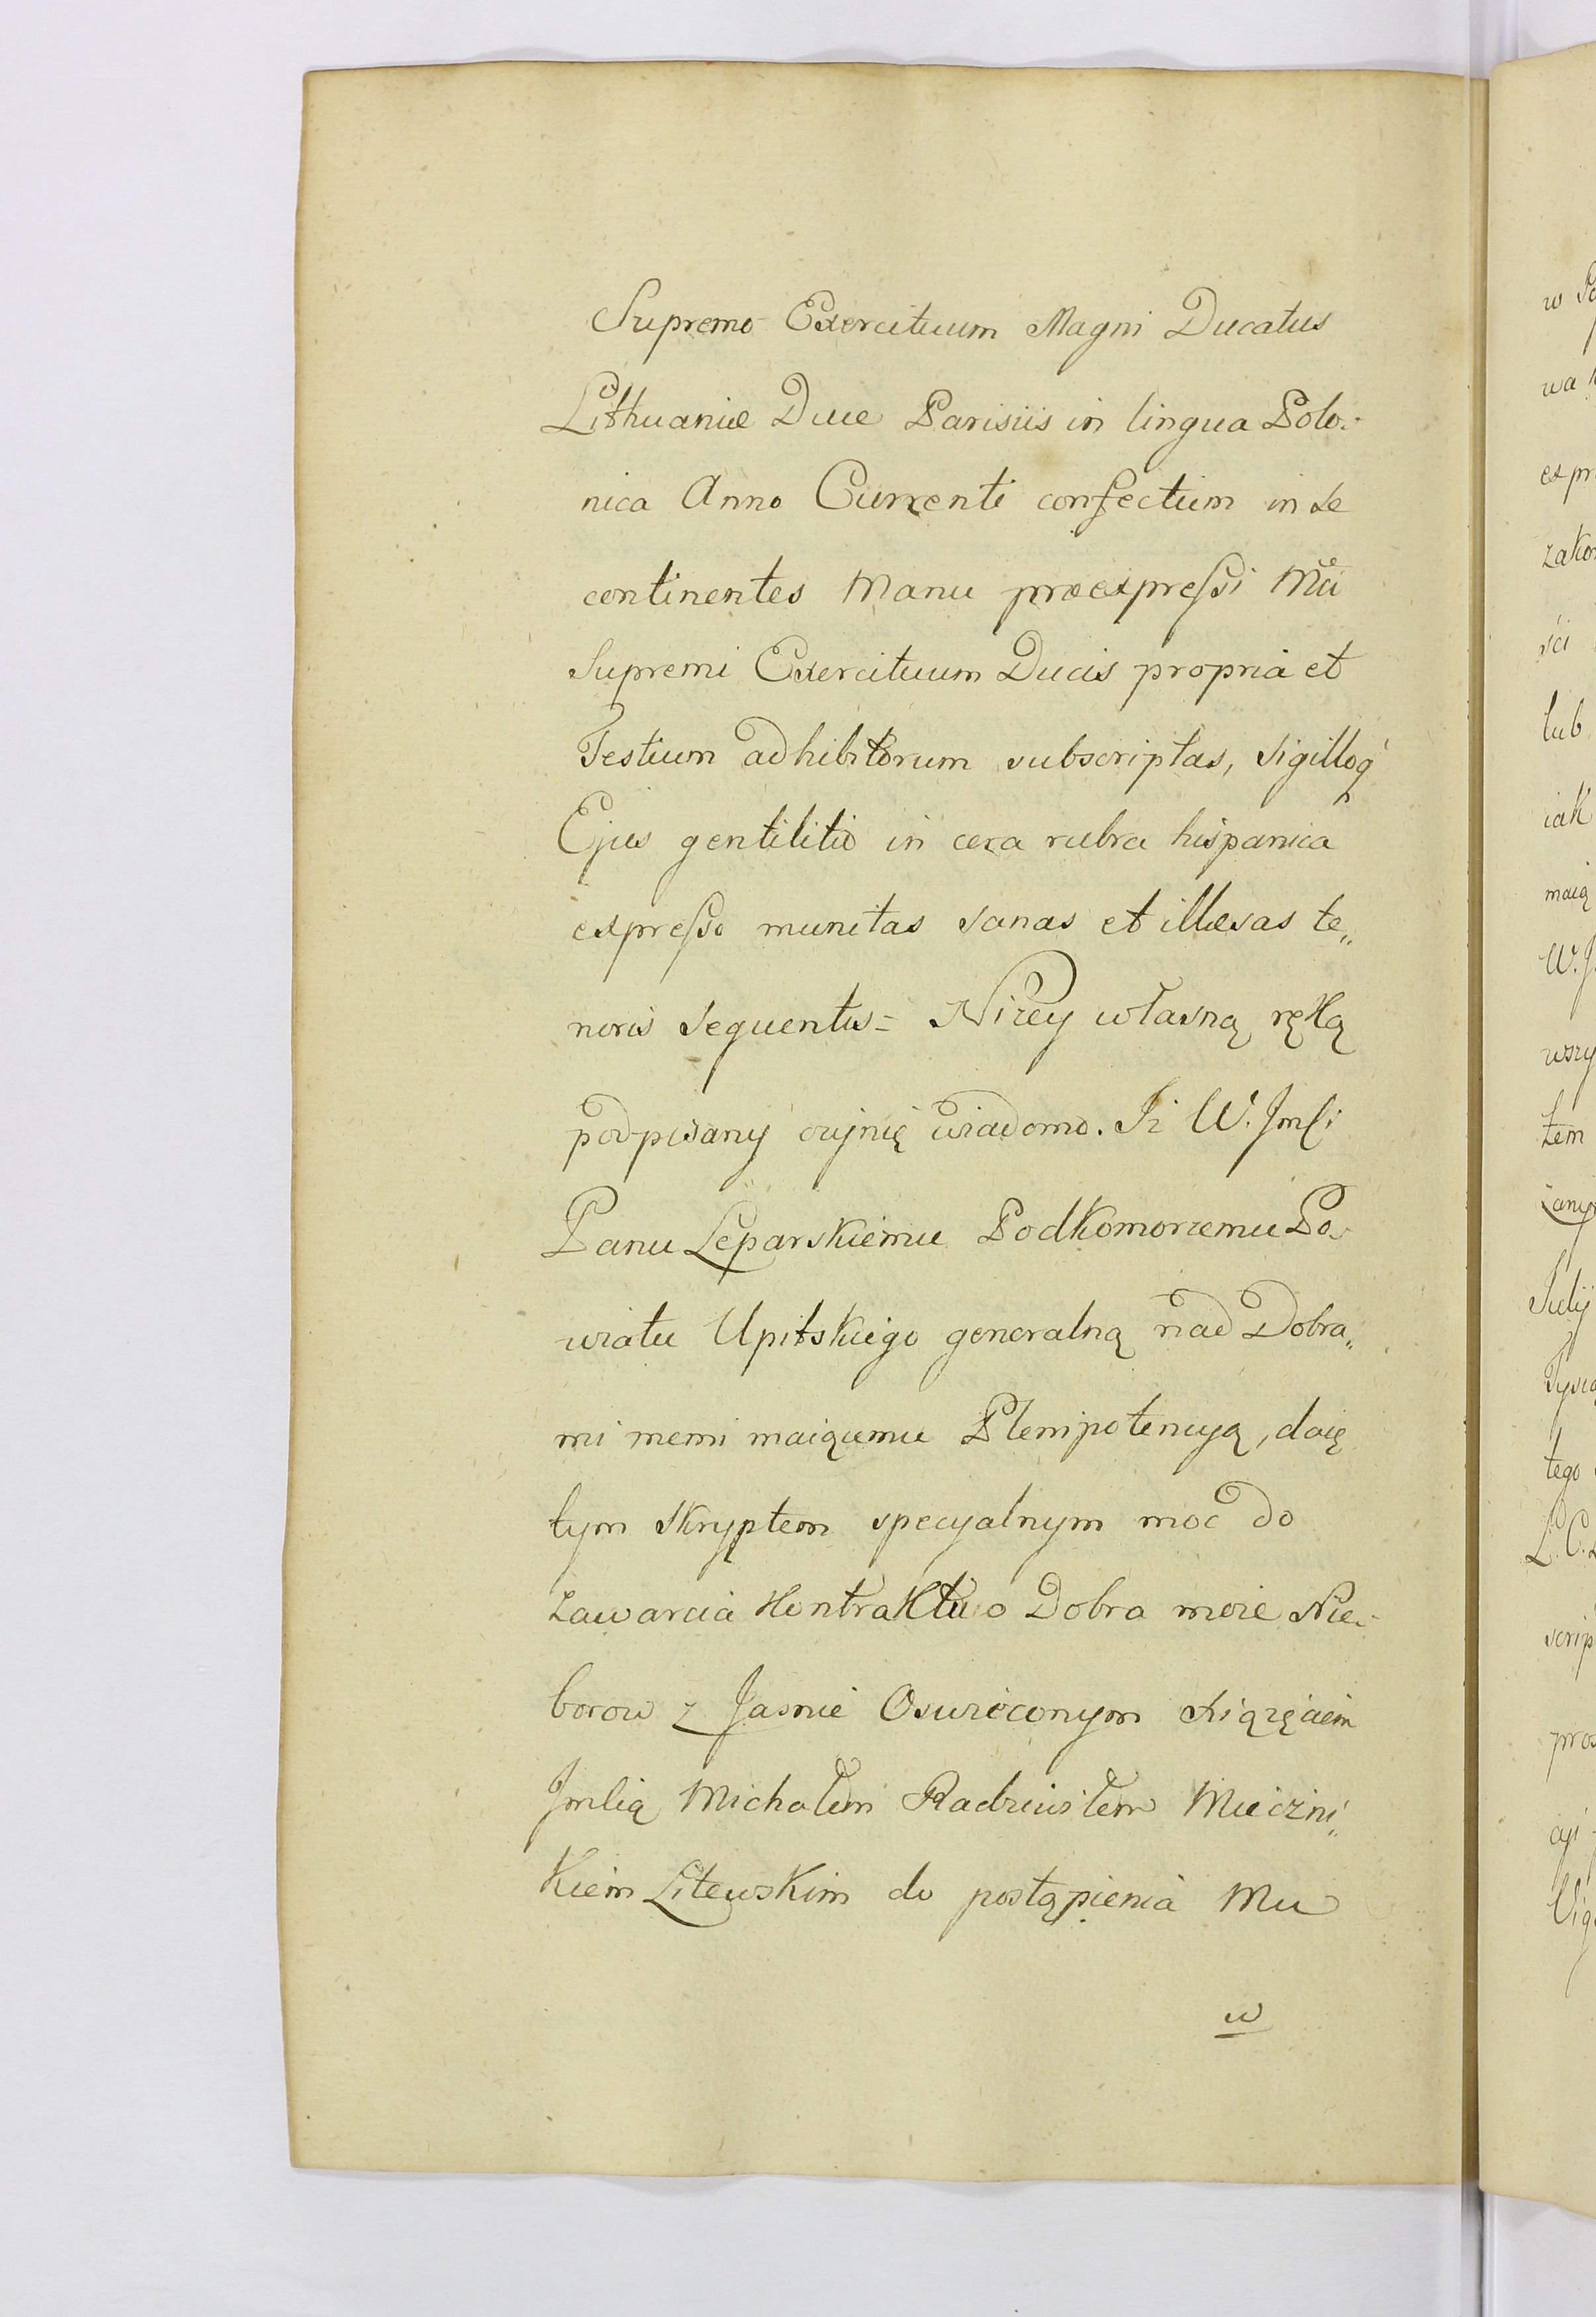 Supremo Exercituum Magni Ducatus
Lithuaniæ Duce Parisiis in lingua Polo-
nica Anno Currenti confectum in se
continentes Manu præexpreſsi Mci
Supremi Exercituum Ducis propria et
Testium adhibitorum subscriptas, sigilloq́
Ejus gentilitio in cera rubra hispanica
expreſso munitas sanas et illæsas te„
noris sequentis= Nizey własną ręką
podpisany czynię wiadomo. Iż W. Jmſi
Panu Leparskiemu Podkomorzemu Po-
wiatu Upitskiego generalną nad Dobra„
mi memi maiącemu Plenipotencyą, daię
tym skryptem specyalnym moc do
zawarcia Kontraktu o Dobra moie Nie-
borow z Jasnie Oswieconym Xiążęciem
Jmścią Michałem Radziwiłem Mieczni„
kiem Litewskim do postąpienia Mu
w
w
wa
expr
zakon
ści
lub
iak
maią
W. J.
wszy
tem
Julij
Tysią
tego
L. C.
scrip